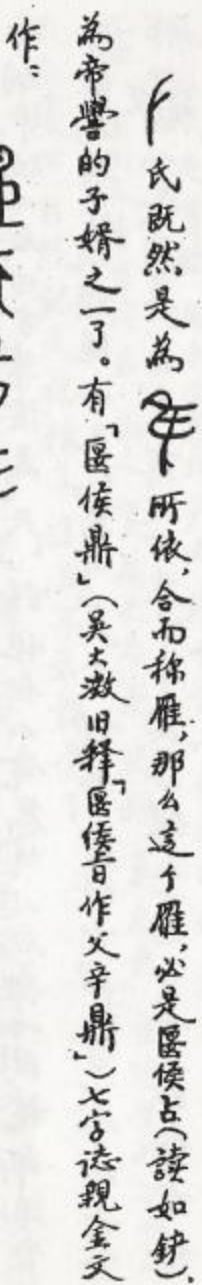 氏既然是為 所依，合而称雁，那么這个雁，必是匽侯占（讀如鉾），
為帝嚳的子婿之一了。有「匽侯鼎」（吴大澂旧释「匽侯旨作父辛鼎」）七字誌親金文
作：